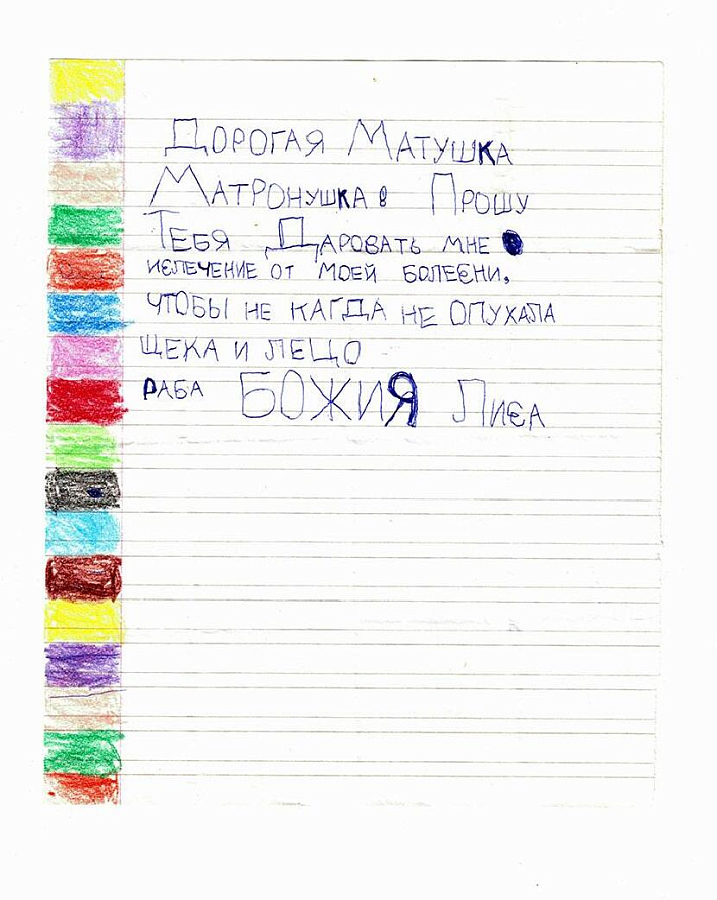 Дорогая Матушка
Матронушка! Прошу
Тебя Даровать мне
иєлечение от моей болеєни,
чтобы не кагда не опухала
щека и лецо
раба БОЖИЯ Лиєа